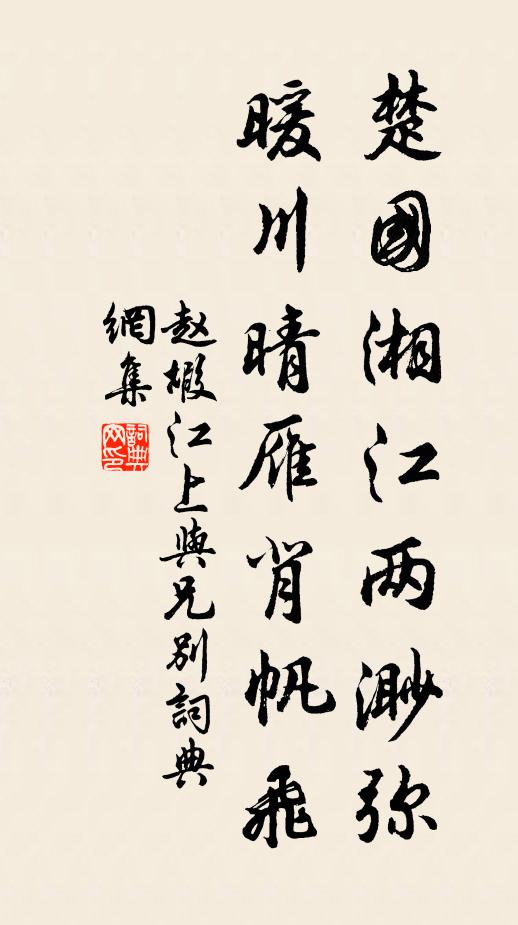 楚國湘江两渺弥
暖川晴雁背帆飛
赵嘏江上與兄别詞典
網集
詞典网印